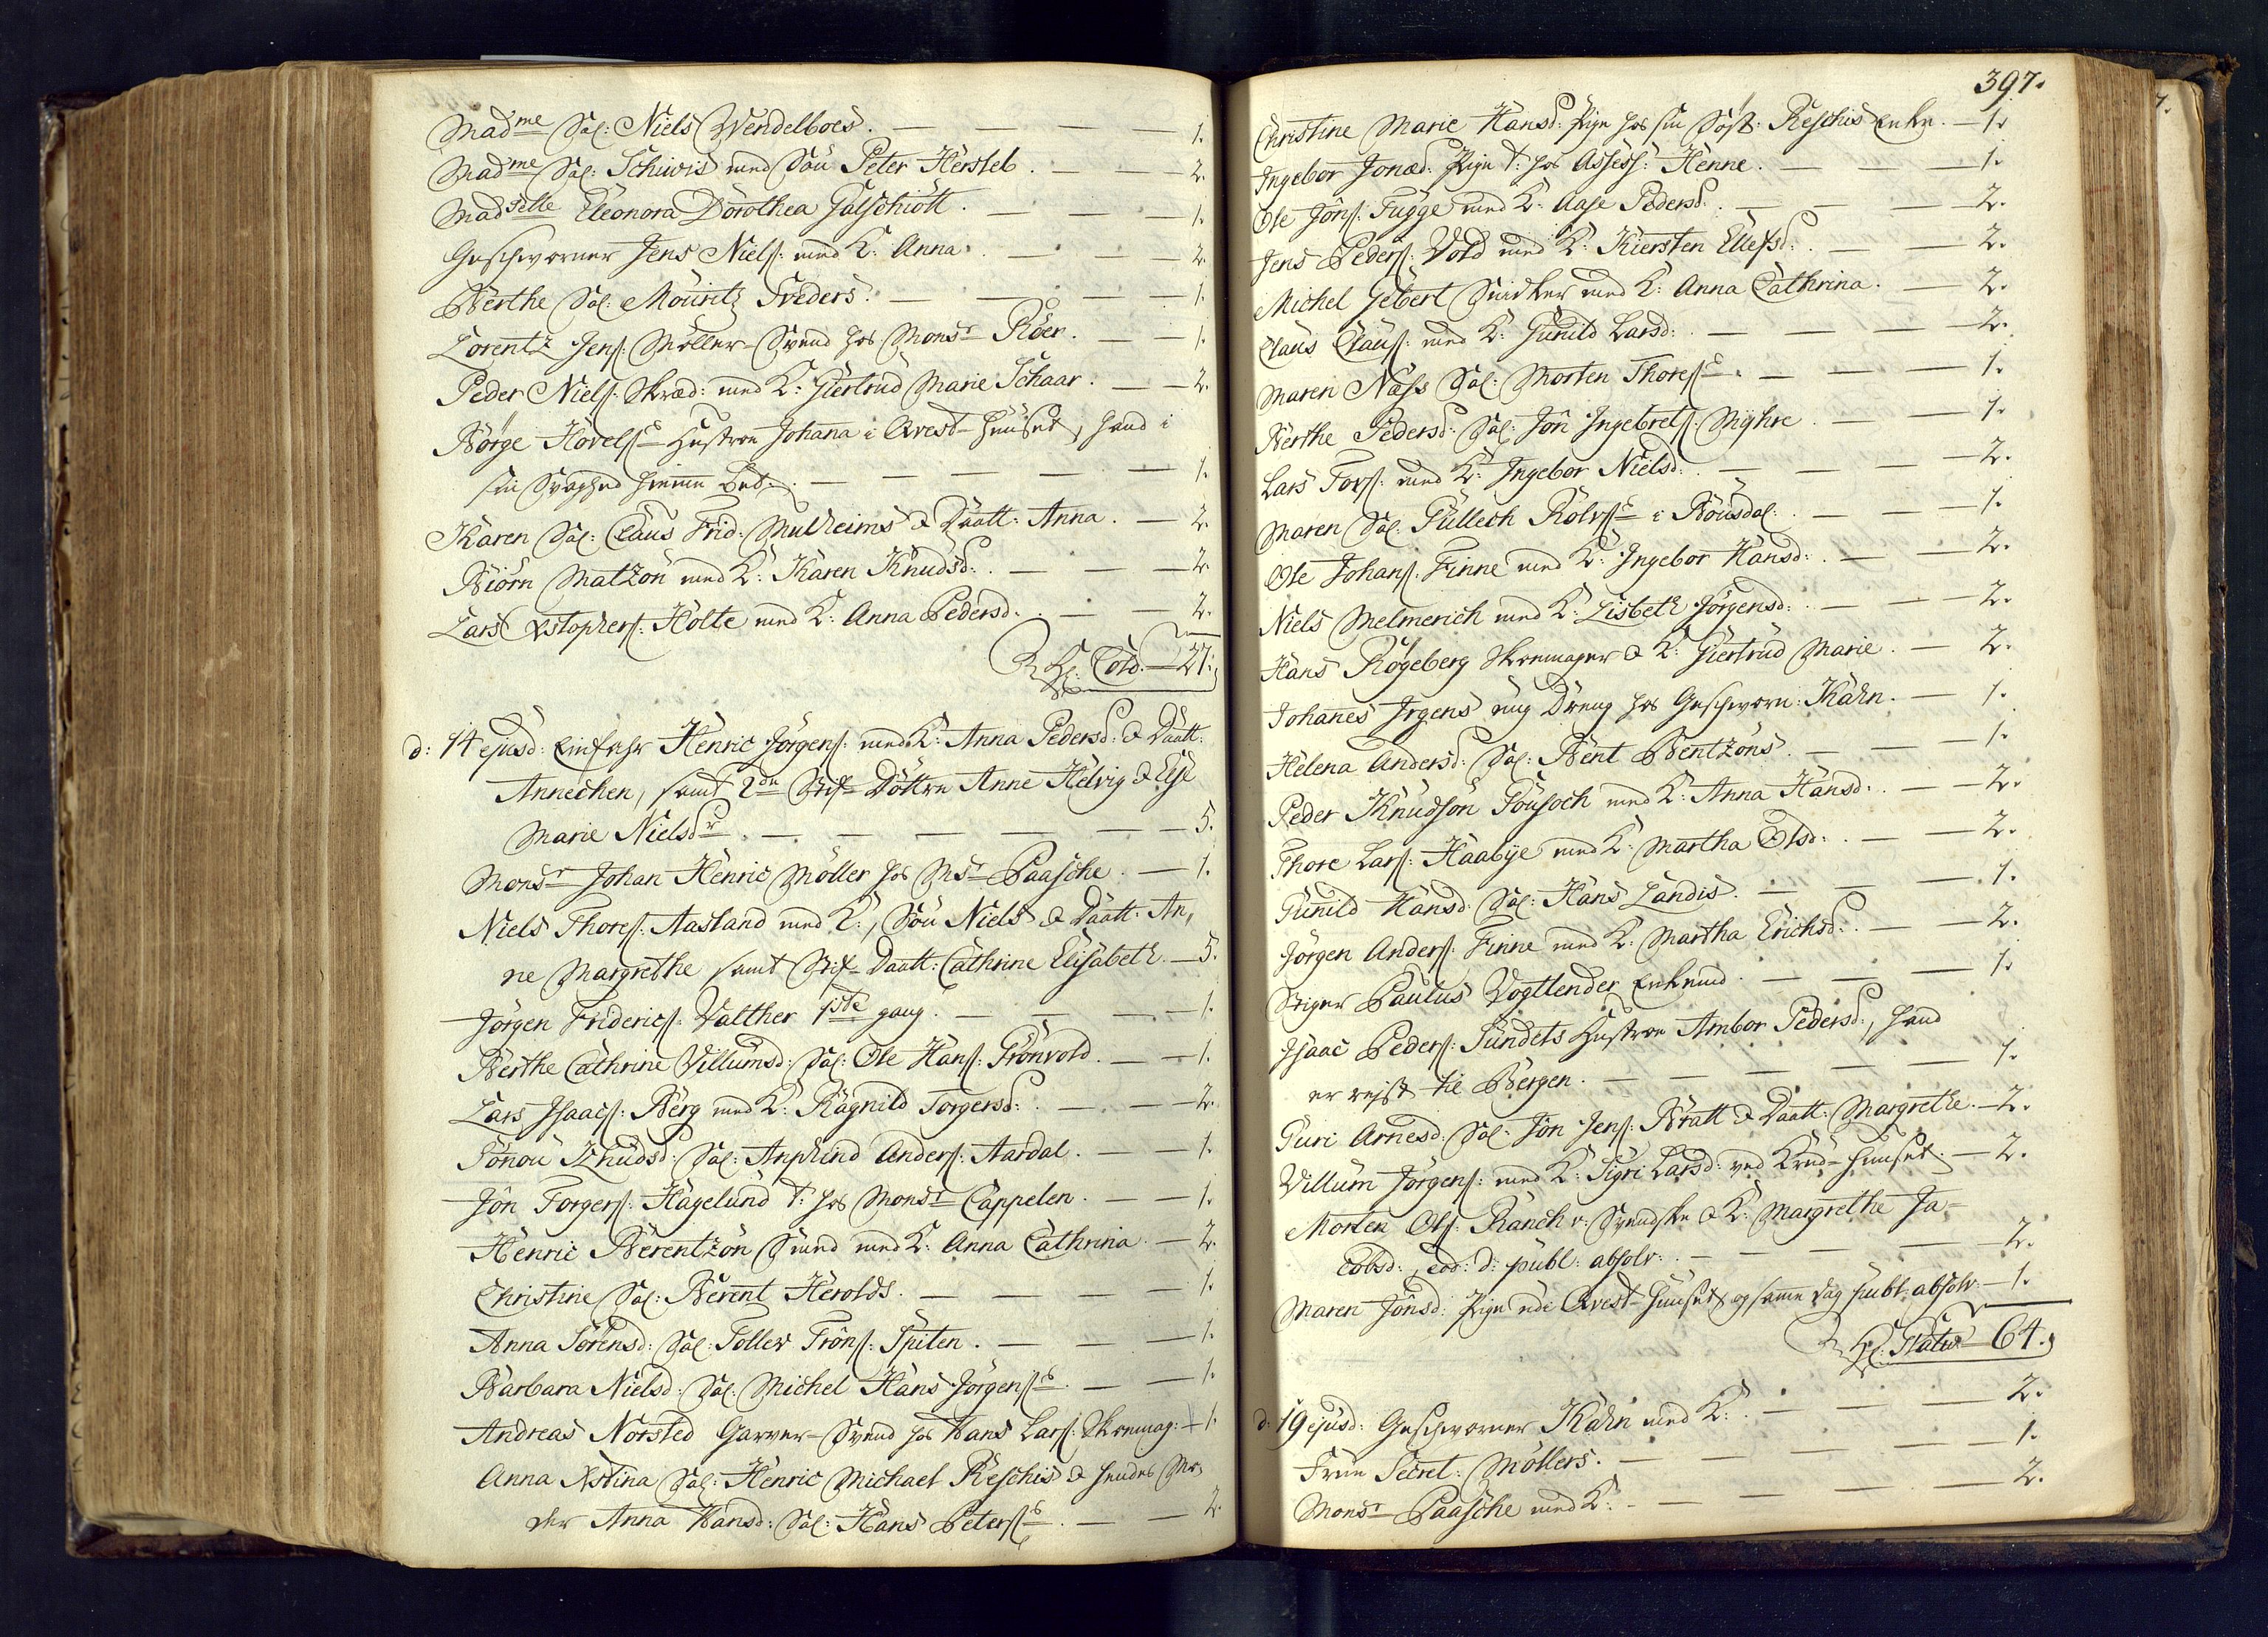 Mad.me Sal: Niels Wendelboes. — — — 1.
Mad.me Sal: Schiwis med Søn Peter Hersleb. — — 2.
Mad.selle Eleonora Dorothea Galschiött. — — 1.
Geschworner Jens Niels: med K: Anna. — — 2.
Berthe Sal: Mouritz Greders. — — — 1.
Lorentz Jens: Møller-Svend hos Monsr Röer. — — 1.
Peder Niels: Skræd: med K: Giertrud Marie Schaar. — — 2.
Börge Hovels: Hustroe Johana i Qvest-Huuset, hand i
sin Svaghed hiemme Bet: — — — — 1.
Karen Sal: Claus Frid: Mulheims & Daatt: Anna. — 2.
Biörn Matzön med K: Karen Knudsd: — — 2.
Lars Xstophers: Holte med K: Anna Pedersd. — — 2.
Cold. — 27.
d: 14 ejusd: Henric Jörgens: med K: Anna Pedersd: & Daatt:
Annechen, samt 2de Stif-Döttre Anne Helvig & Else
Marie Nielsdr — — — — 5.
Monsr Johan Henric Möller hos Msr Paasche. — 1.
Niels Thores: Aasland med K:, Søn Niels & Daatt: An,
ne Margrethe samt Stif-Daatt: Cathrine Elisabeth. — 5.
Jörgen Friderics: Valther 1ste gang. — — — 1.
Berthe Cathrine Villumsd: Sal: Ole Hans: Grönvold. — — 1.
Lars Isaacs: Berg med K: Ragnild Torgersd: — — 2.
Gönou Knudsd: Sal: Anphind Anders: Aardal. — — 1.
Jön Torgers: Hagelund t: hos Monsr Cappelen. — — 1.
Henric Berentzön Smed med K: Anna Cathrina. — 2.
Christine Sal: Berent Herolds. — — — 1.
Anna Sörensd: Sal: Tollev Tröns: Spiten. — — 1.
Barbara Nielsd: Sal: Michel Hans Jörgens: — — 1.
Andreas Norsted Garver-Svend hos Hans Lars: Skoemag: — 1.
Anna Xstina Sal: Henric Michael Reschis & hendes Mo,
der Anna Hansd: Sal: Hans Peters: — — 2.
397.
Christine Marie Hansd: Pige hos sin Söst: Reschis Enke. — 1.
Ingebor Jonæd: Pige t: hos Assess: Henne. — — 1.
Ole Jöns: Fugge med K: Aase Pedersd. — — 2.
Jens Peders: Vold med K: Kiersten Ellefsd: — — 2.
Michel Gebert Snidker med K: Anna Cathrina. — 2.
Claus Claus: med K: Gunild Larsd: — — — 2.
Maren Næss Sal: Morten Thores: — — — 1.
Berthe Pedersd: Sal: Jön Ingebrets: Myhre. — — 1.
Lars Tors: med K: Ingebor Nielsd: — — — 2.
Maren Sal: Gullech Rolvs: i Bøusdal. — — — 1.
Ole Johans: Finne med K: Ingebor Hansd: — — 2.
Niels Melmerich med K: Lisbeth Jörgensd: — — 2.
Hans Rögeberg Skoemager & K: Giertrud Marie. — 2.
Johanes Jrgens ung Dreng hos Geschworn: Kahn. — 1.
Helena Andersd: Sal: Bent Bentzöns. — — — 1.
Peder Knudsön Fousoch med K: Anna Hansd: — — 2.
Thore Lars: Haabye med K: Martha Olsd: — — 2.
Gunild Hansd: Sal: Hans Landis. — — — 1.
Jörgen Anders: Finne med K: Martha Erichsd: — — 2.
Stiger Paulus Vogtlender Enkemd. — — — 1.
Isaac Peders: Sundets Hustroe Ambor Pedersd:, hand
er reyst til Bergen. — — — — 1.
Guri Arnesd: Sal: Jön Jens: Bratt & Daatt: Margrethe. — 2.
Villum Jörgens: med K: Sigri Larsd: ved Krud-Huuset. — 2.
Morten Ols: Ranch v: Svendske & K: Margrethe Ja-
cobsd:, eod: d: publ: absolv: — — — 2.
Maren Jönsd: Pige udi Qvest-Huuset og samme dag publ: absolv: — 1.
— 64.
d: 19 ejusd: Geschworner Kahn med K: — — — 2.
Frue Secret: Möllers. — — — — 1.
Monsr Paasche med K: — — — — 2.